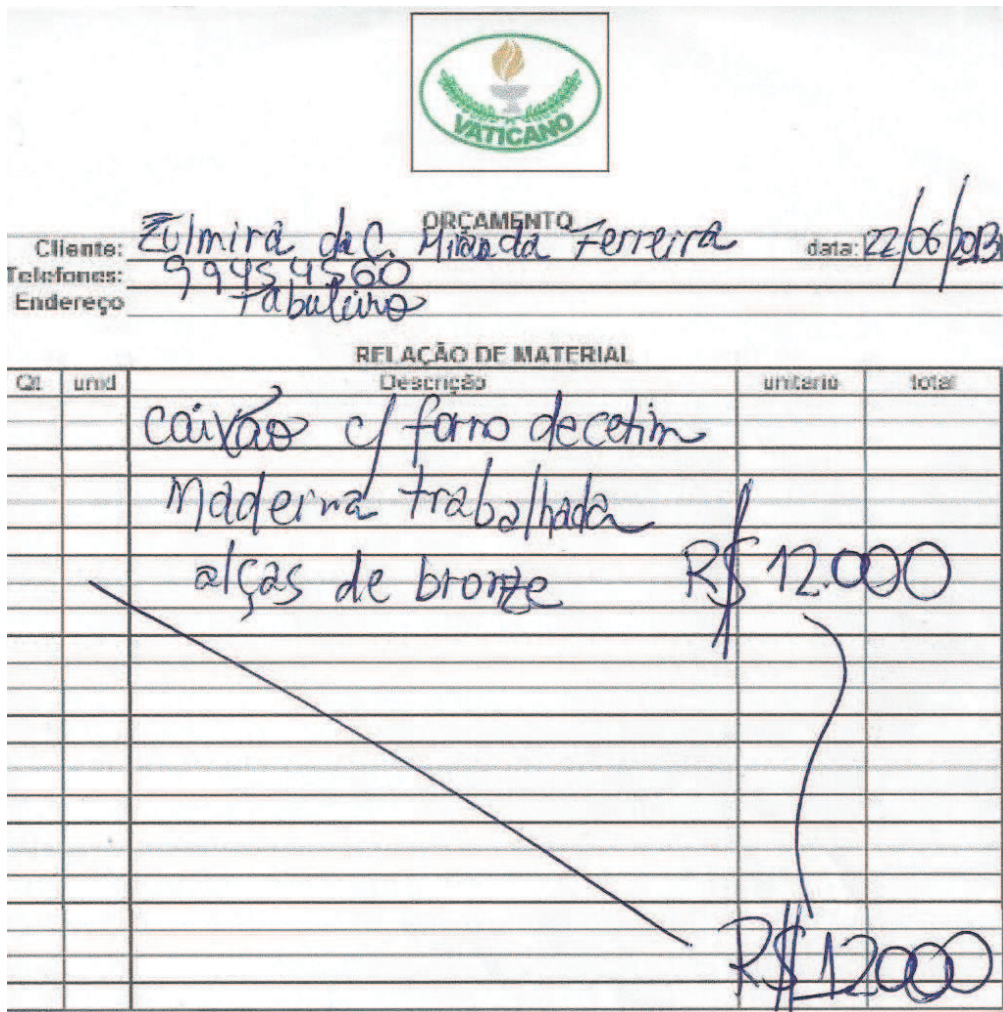 VATICANO
ORÇAMENTO
Cliente: Zulmira da C. Miranda Ferreira data: 22/06/2013
Telefones: 99454560
Endereço Tabuleiro
RELAÇÃO DE MATERIAL
Qt unid Descrição unitario total
Caixão c/ forro de cetim
Madeira trabalhada
alças de bronze R$ 12.000
R$ 12000